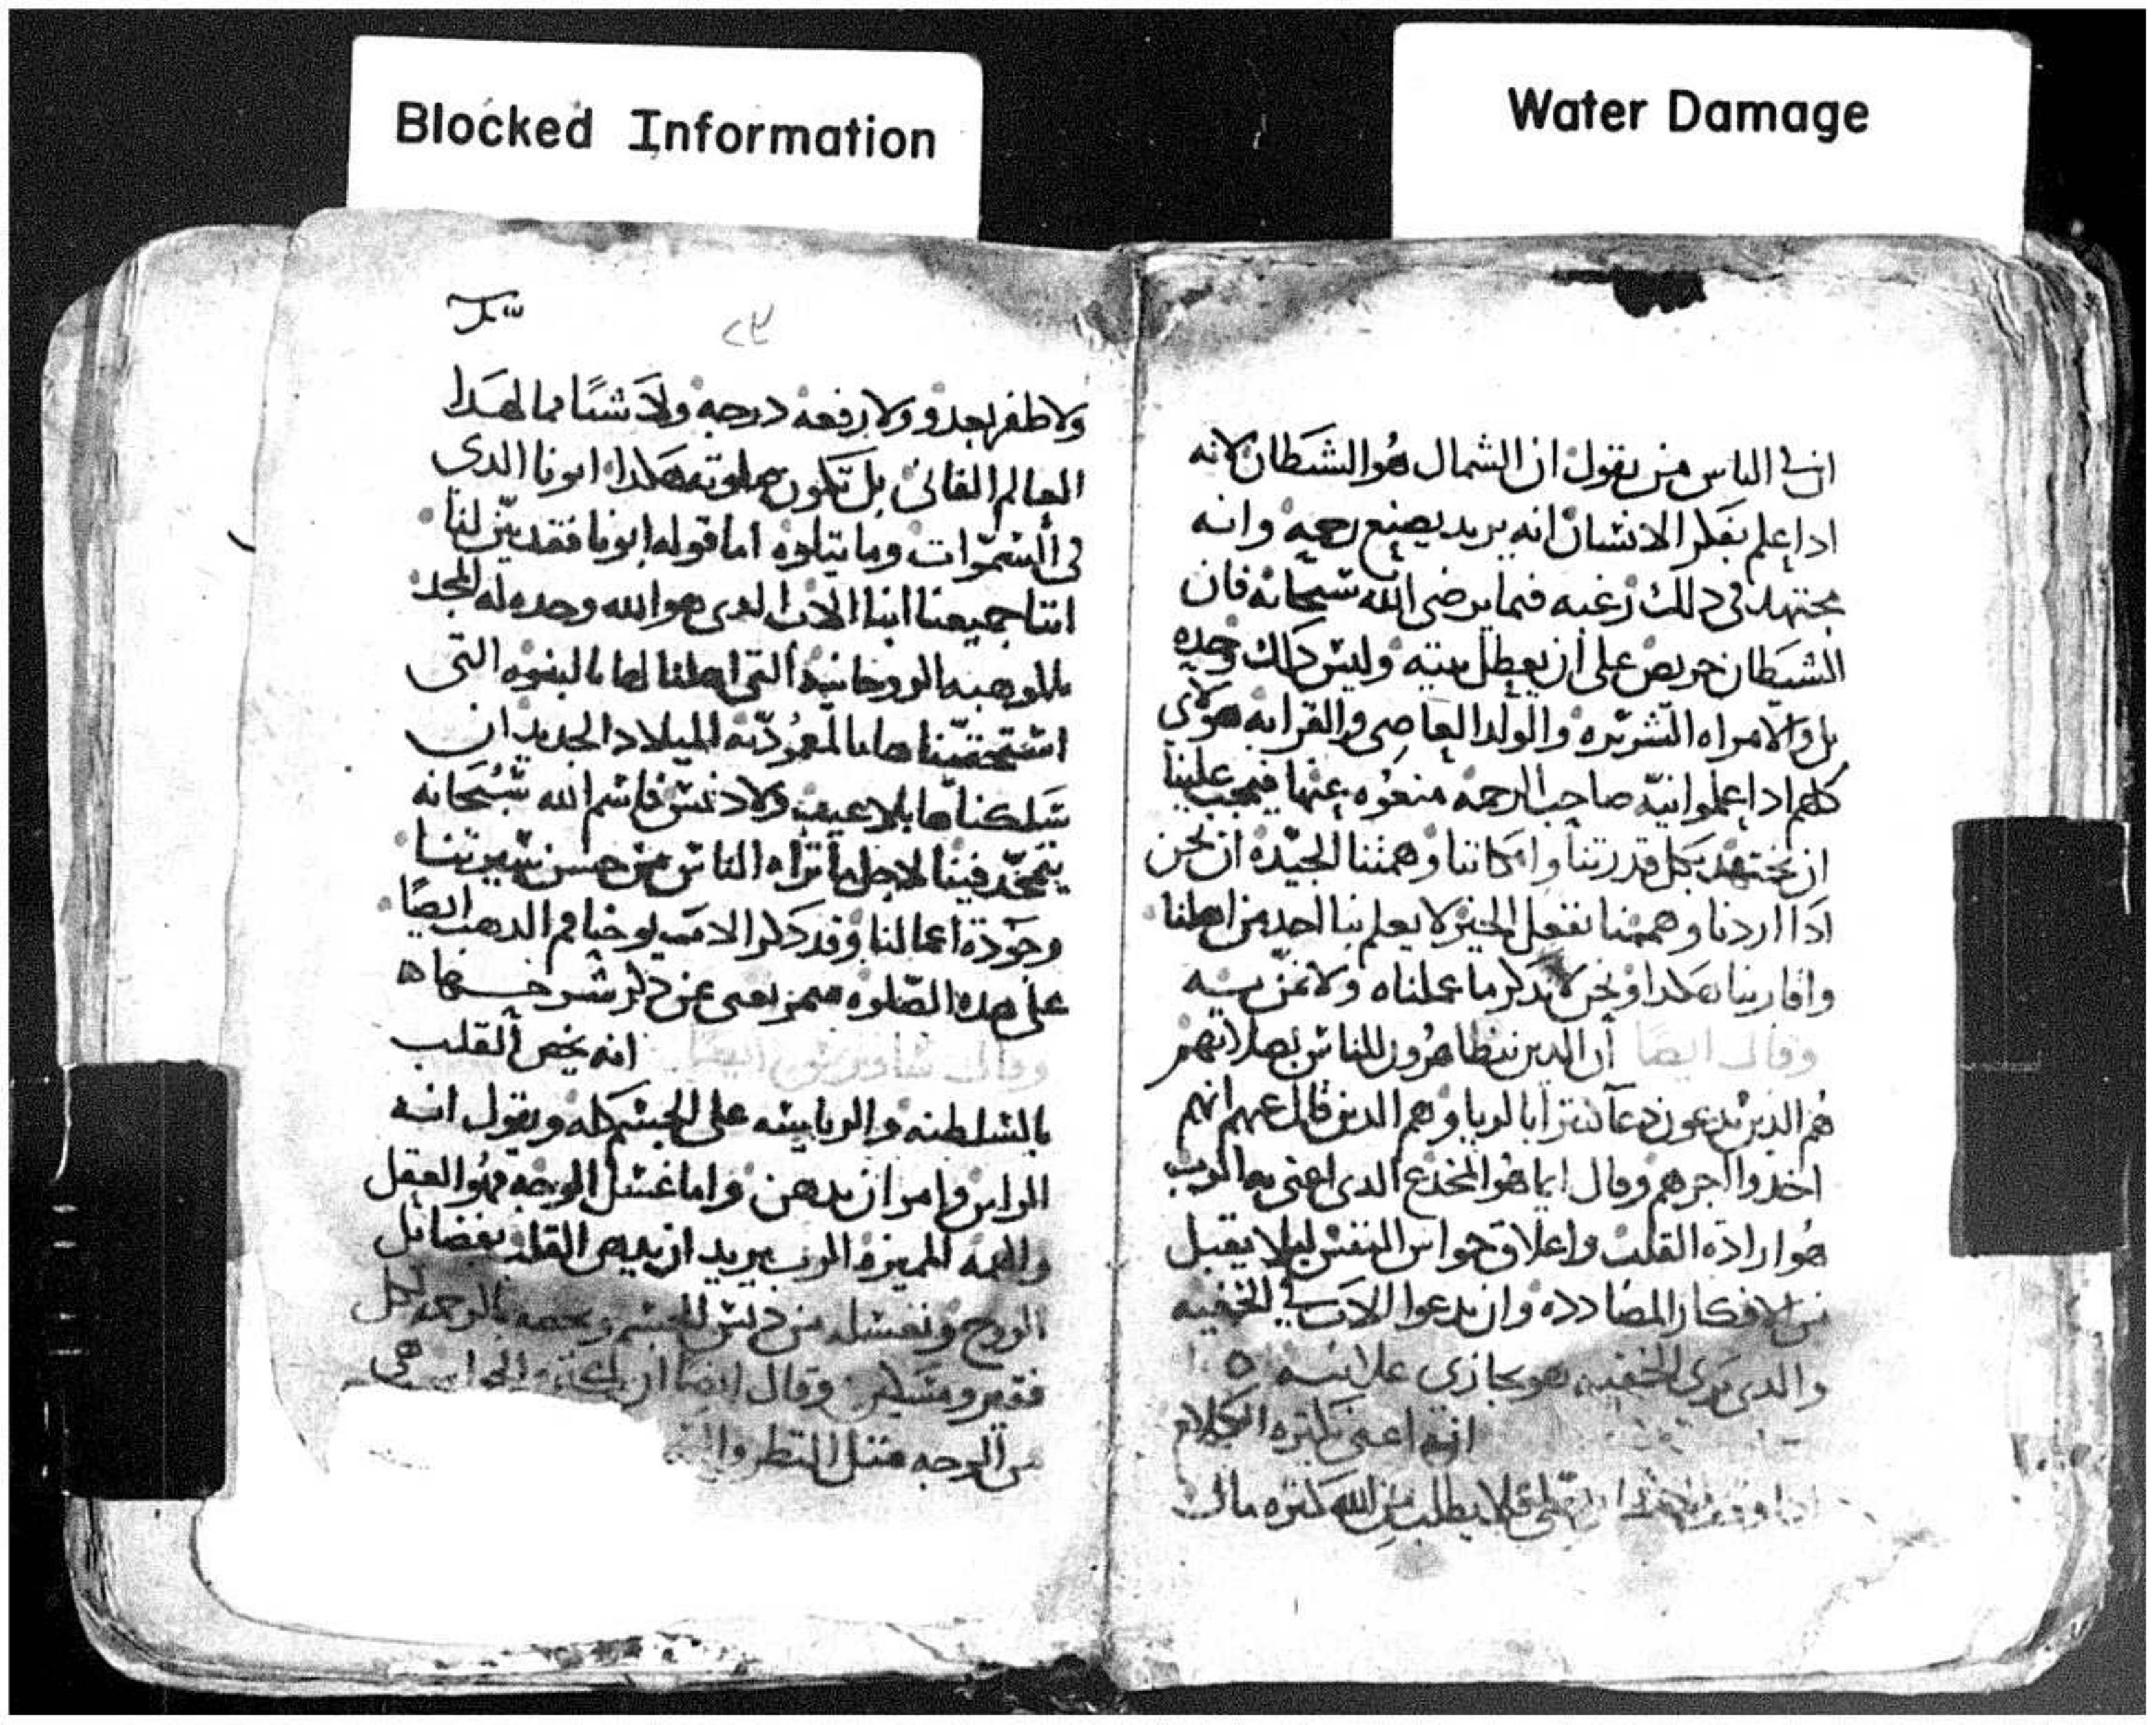 Blocked Information
Water Damage
ان في الناس من يقول ان الشمال هو الشيطان لانه
ادا علم بفكر الانسان انه يريد يصنع رحمه وانه
مجتهد في دلك رغبه فيما يرضى الله سبحانه فان
الشيطان حريص على ان يعطل نيته وليس داك وحده
بل والامراه الشريره والولد العاصي والقرابه هولاي
كلهم ادا علموا نية صاحب الرحمه منعوه عنها فيجب علينا
ان نجتهد بكل قدرتنا وامكاننا وهمتنا الجيده ان نحن
ادا اردنا وهممنا نفعل الخير لا يعلم بنا احد من اهلنا
واقاربنا هكدا ونحن لا ندكر ما عملناه ولا نمن به
وقال ايضا ان الدين يتظاهرون للناس بصلاتهم
هم الدين يدعون دعا كثيرا بالريا وهم الدين قال عنهم انهم
اخدوا اجرهم وقال ايما هو المخدع الدي اعنى به الرب
هو ارادة القلب واغلاق حواس النفس ليلا يقبل
من الافكار المضادده وان يدعوا الاب في الخفيه
والدي يرى الخفيه هو يجازي علانيه ه
انه اعنى بكثره الكلام
فلا يطلب من الله كثره مال
٢٤
ولا ظفر بعدو ولا رفعه درجه ولا شيا مما لهدا
العالم الفاني بل تكون صلوته هكدا ابونا الدي
في السموات وما يتلوه اما قوله ابونا فقد بين لنا
اننا جميعنا ابنا الاب الدي هو الله وحده له المجد
بالموهبه الروحانيه التي اهلنا لها بالبنوه التي
استحقيناها بالمعموديه الميلاد الجديد ان
سلكناها بلا عيب ولا دنس فاسم الله سبحانه
يتمجد فينا لاجل ما تراه الناس من حسن سيرتنا
وجودة اعمالنا وقد دكر الاب يوحنا فم الدهب ايضا
على هده الصلوه مميز يعني عن دكر شرحها ه
وقال ساويرس ايضا انه يخص القلب
بالسلطنه والرياسه على الجسم كله ويقول انه
الراس وامر ان يدهن واما غسل الوجه فهو العقل
والهمه المميزه الرب يريد ان يدهن القلب بفضايل
الروح ونغسله من دنس الجسم ونخصه بالرحمه لكل
فقير ومسكين وقال ايضا ان هي
من الوجه متل النظر